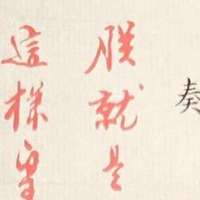 奏
朕就是
這樣